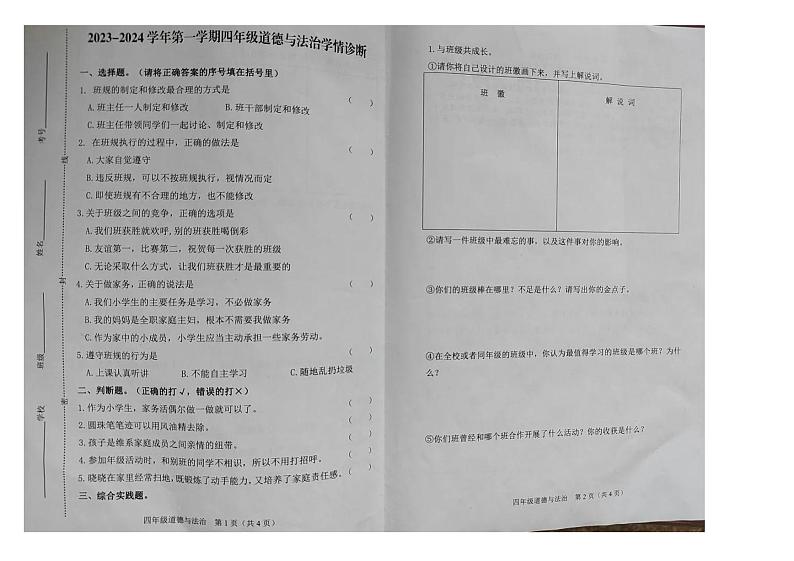 2023-2024 学年第一学期四年级道德与法治学情诊断
一、选择题。（请将正确答案的序号填在括号里）
1. 班规的制定和修改最合理的方式是 （ ）
A.班主任一人制定和修改 B.班干部制定和修改
C.班主任带领同学们一起讨论、制定和修改
2. 在班规执行的过程中，正确的做法是 （ ）
A.大家自觉遵守
B.违反班规，可以不按班规执行，视情况而定
C.即使班规有不合理的地方，也不能修改
3.关于班级之间的竞争，正确的选项是 （ ）
A.我们班获胜就欢呼,别的班获胜喝倒彩
B.友谊第一，比赛第二，祝贺每一次获胜的班级
C.无论采取什么方式，让我们班获胜才是最重要的
4.关于做家务,正确的说法是 （ ）
A.我们小学生的主要任务是学习，不必做家务
B.我的妈妈是全职家庭主妇，根本不需要我做家务
C.作为家中的小成员，小学生应当主动承担一些家务劳动。
5.遵守班规的行为是 （ ）
A.上课认真听讲 B.不能自主学习 C.随地乱扔垃圾
二、判断题。（正确的打√，错误的打×）
1.作为小学生，家务活偶尔做一做就可以了。 （ ）
2.圆珠笔笔迹可以用风油精去除。 （ ）
3.孩子是维系家庭成员之间亲情的纽带。 （ ）
4.参加年级活动时，和别班的同学不相识，所以不用打招呼。 （ ）
5.晓晓在家里经常扫地,既锻炼了动手能力,又培养了家庭责任感。 （ ）
三、综合实践题。
四年级道德与法治 第1页（共4页）
学校
班级
姓名
考号
密
封
线
1.与班级共成长。
①请你将自己设计的班徽画下来，并写上解说词。
班 徽
解 说 词
②请写一件班级中最难忘的事，以及这件事对你的影响。
③你们的班级棒在哪里？不足是什么？请写出你的金点子。
④在全校或者同年级的班级中，你认为最值得学习的班级是哪个班？为什
么？
⑤你们班曾经和哪个班合作开展了什么活动？你的收获是什么？
四年级道德与法治 第2页（共4页）